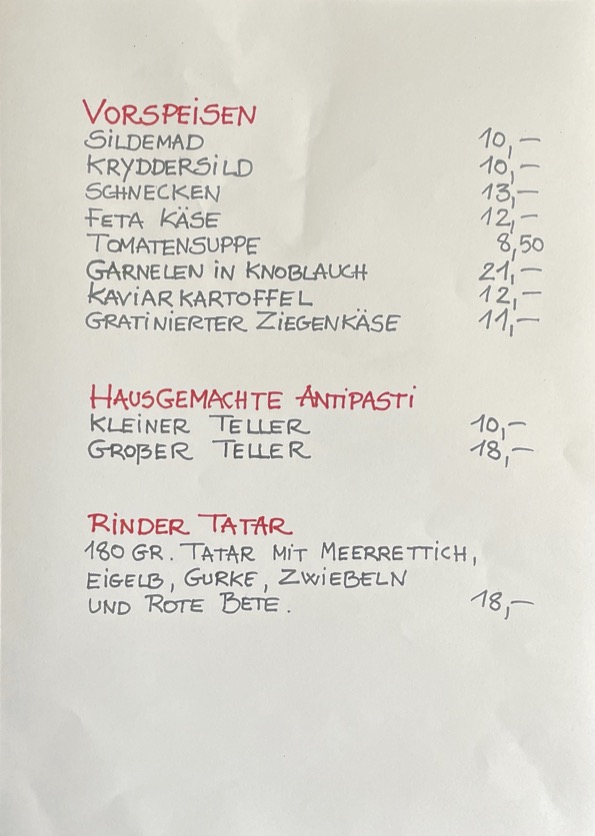 VORSPEISEN
SILDEMAD 10,–
KRYDDERSILD 10,–
SCHNECKEN 13,–
FETA KÄSE 12,–
TOMATENSUPPE 8,50
GARNELEN IN KNOBLAUCH 21,–
KAVIAR KARTOFFEL 12,–
GRATINIERTER ZIEGENKÄSE 11,–
HAUSGEMACHTE ANTIPASTI
KLEINER TELLER 10,–
GROßER TELLER 18,–
RINDER TATAR
180 GR. TATAR MIT MEERRETTICH,
EIGELB, GURKE, ZWIEBELN
UND ROTE BETE. 18,–